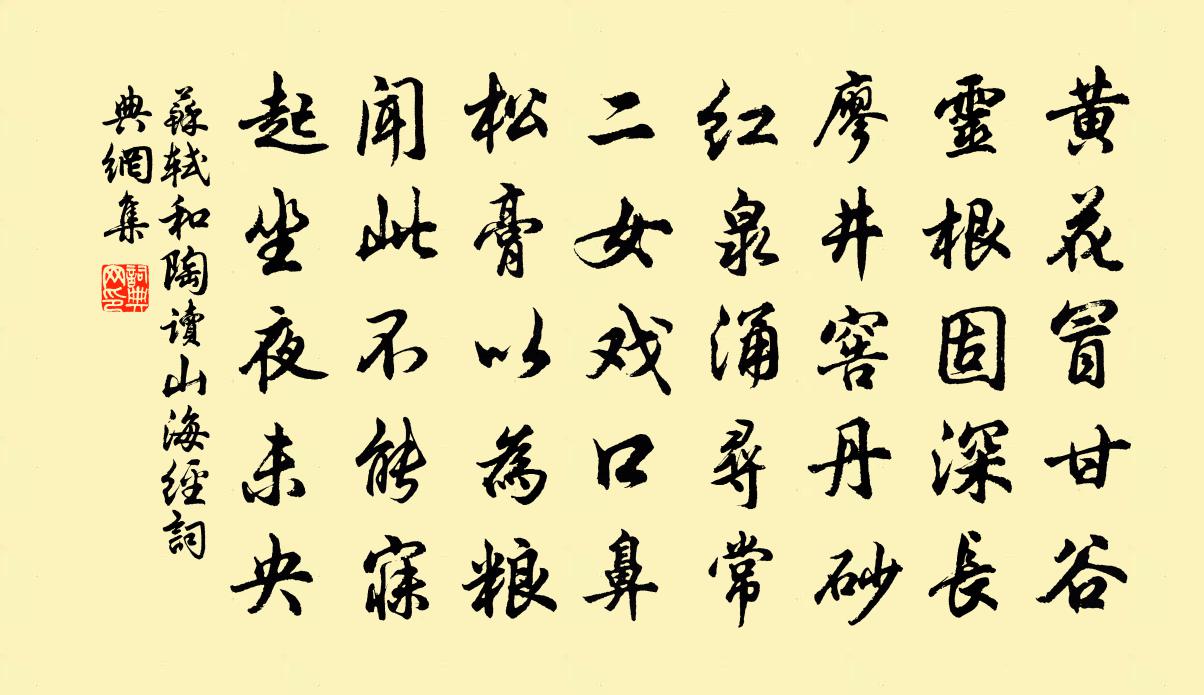 黄花冒甘谷
靈根固深長
廖井窖丹砂
红泉涌尋常
二女戏口鼻
松膏以為粮
闻此不能寐
起坐夜未央
蘇轼和陶读山海經詞
典網集
詞典
网印